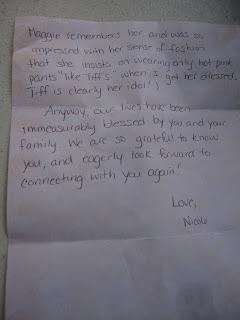 Maggie remembers her and was so
impressed with her sense of fashion
that she insists on wearing only hot pink
pants "like Tiff's" when I get her dressed.
Tiff is clearly her idol! :)
Anyway, our lives have been
immeasurably blessed by you and your
family. We are so grateful to know
you, and eagerly look forward to
connecting with you again!
Love,
Nicole